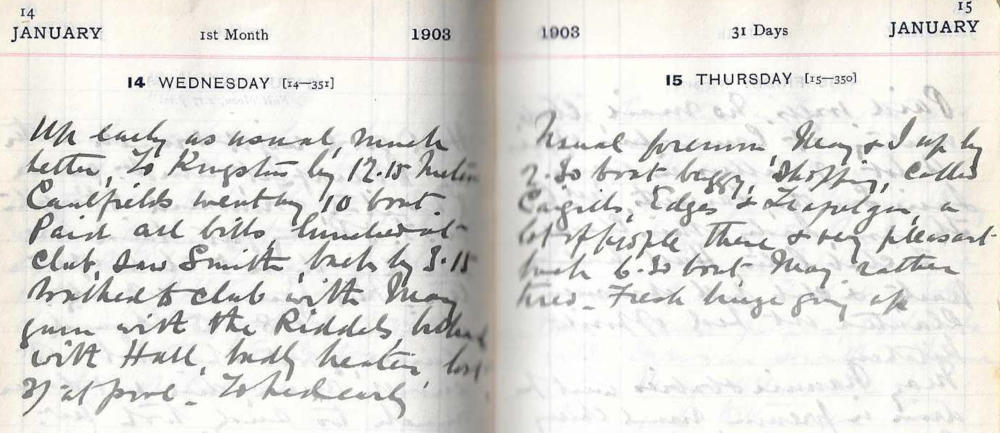 14
JANUARY 1st Month 1903
14 WEDNESDAY [14—351]
Up early as usual, much
better, To Kingston by 12.15
Caulfields went by 10 boat.
Paid all bills, lunched at
Club, saw Smith, back by 3.15
Walked to club with May
with the Riddels,
with Hall, badly beaten, lost
at pool - To bed early
15
1903 31 Days JANUARY
15 THURSDAY [15—350]
Usual forenoon, May & I up by
2.30 boat buggy, shopping, called
Cargills, Edges & a
lot of people there & very pleasant
back 6.30 boat - May rather
tired - Fresh going up